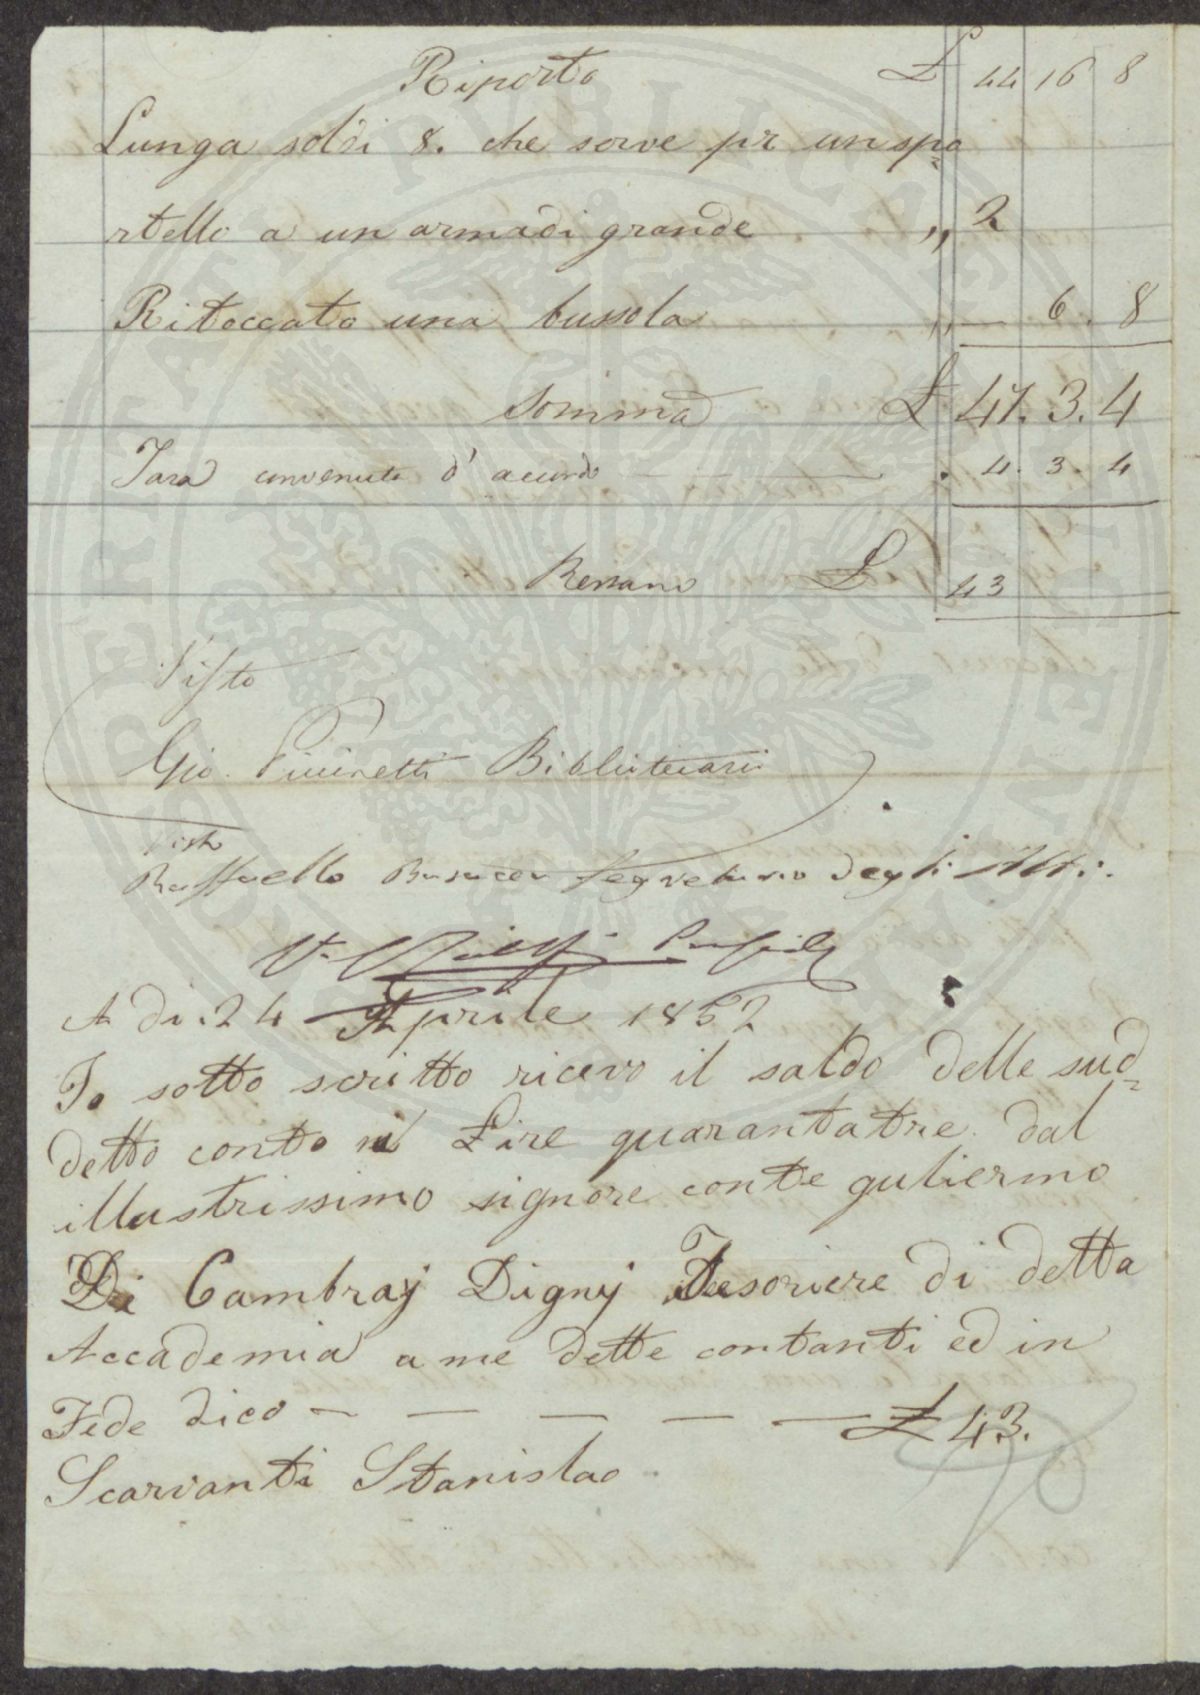 Riporto £ 44 16 8
Lunga soldi 8. che serve pr un spo
rtello a un armadi grande „ 2
Ritoccato una bussola „ — 6. 8
Somma £ 47. 3. 4
Tara convenuta d' acordo — — — . 4. 3. 4
Restano £ 43
Visto
Gio. Bibliotecario
Visto
Raffaello Segretario degli Atti.
A di. 24 Aprile 1852
Io sotto scritto ricevo il saldo delle sud=
detto conto in Lire quarantatre. dal
illustrissimo signore conte guliermo
Di Cambraj Dignij Tesoriere di detta
Accademia a me dette contanti ed in
Fede dico — — — — — £ 43.
Scarvanti Stanislao
PERIATAE PVBLICAE